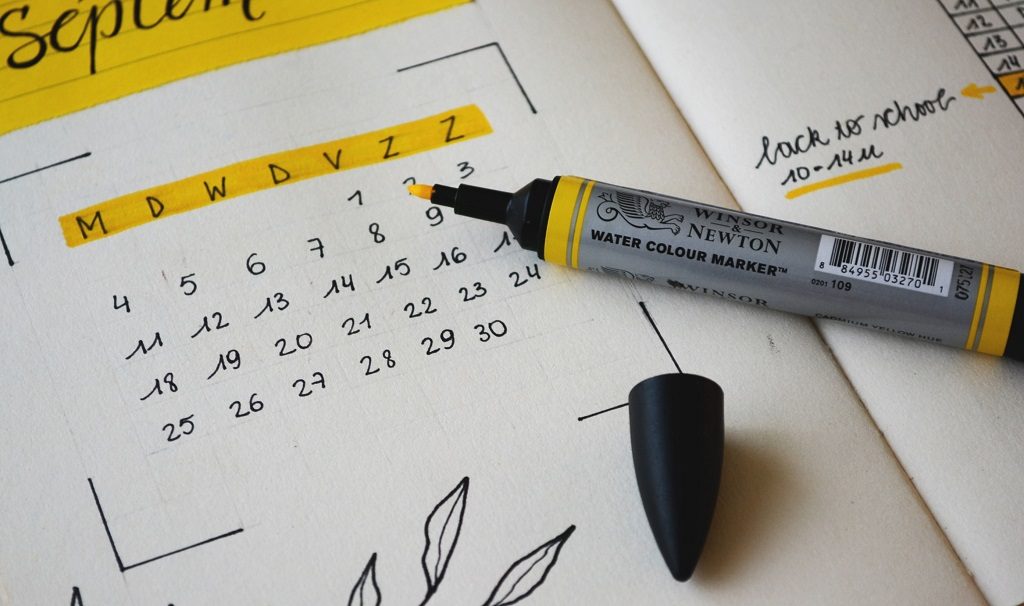 Septem
M D W D V Z Z
1 2 3
4 5 6 7 8 9
11 12 13 14 15 16
18 19 20 21 22 23 24
25 26 27 28 29 30
11
12
13
14
back to school
10-14u
WINSOR
&
NEWTON
WATER COLOUR MARKER™
8 84955 03270 1
0201 109
WINSOR
CADMIUM YELLOW HUE